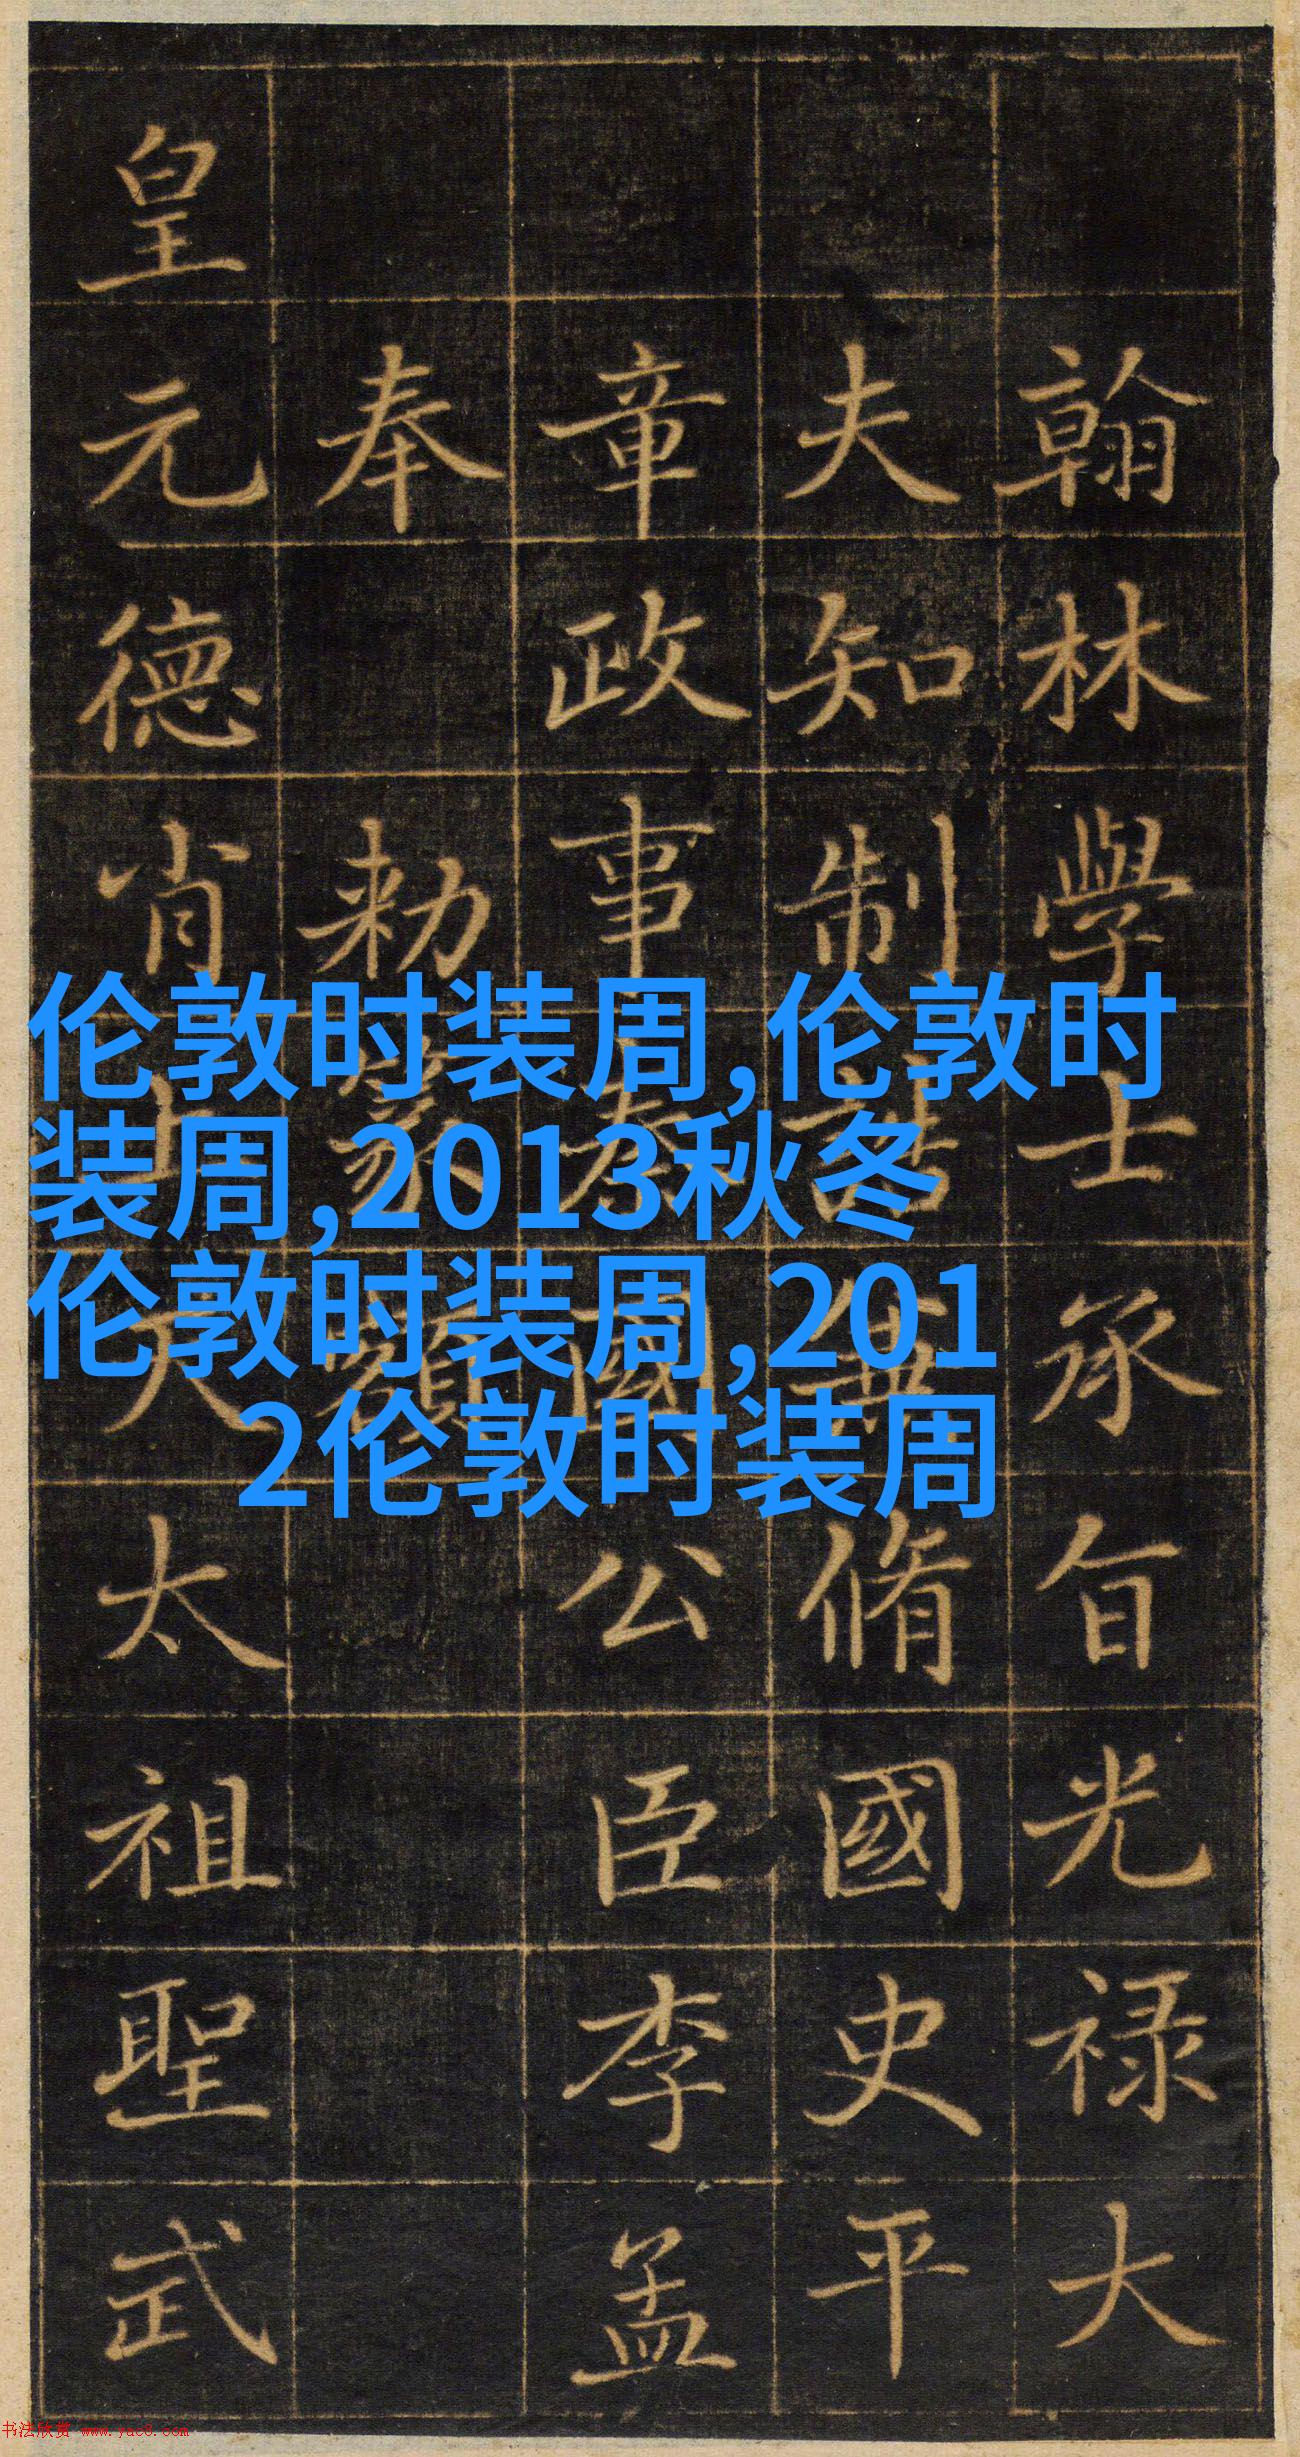 翰林學士承旨光禄大
夫知制誥兼脩國史平
章政事秦國公臣李孟
奉勑篆額
皇元德肖上天太祖聖武
伦敦时装周,伦敦时
装周,2013秋冬
伦敦时装周,201
2伦敦时装周
书法欣赏 www.yac8.com